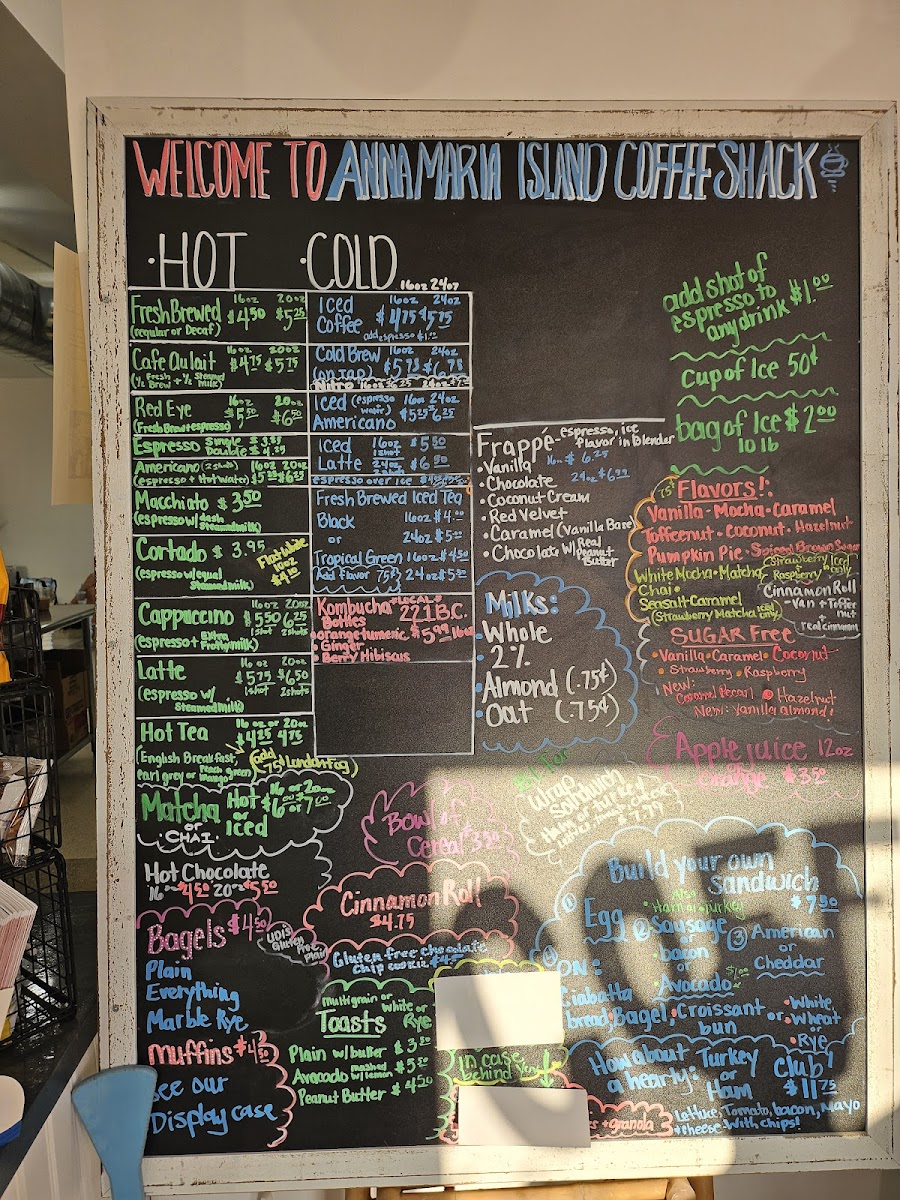 WELCOME TO ANNA MARIA ISLAND COFFEE SHACK
·HOT
Fresh Brewed 16oz $4.50 20oz $5.25
(regular or Decaf)
Cafe Au lait 16oz $4.75 20oz $5.75
(½ Fresh Brew + ½ Steamed milk)
Red Eye 16oz $5.50 20oz $6.50
(Fresh Brew + espresso)
Espresso Single $3.89
Double $4.25
Americano (2 shots) 16oz 20oz
(espresso + Hot water) $6.25
Macchiato $3.50
(espresso w/ dash steamed milk)
Cortado $3.95
(espresso w/ equal steamed milk)
Flat White
Cappuccino 16oz $5.50 1 shot 20oz 6.25 2 shots
(espresso + Extra Frothy milk)
Latte 16oz $5.75 1 shot 20oz $6.50 2 shots
(espresso w/ Steamed milk)
Hot Tea 16oz or 20oz
$4.25 4.75
(English Breakfast, earl grey or Peach Mango green)
add 75¢ London Fog
Matcha Hot 16 or 20oz
or CHAI or Iced $6.00 or 7.00
Hot Chocolate
16oz $4.50 20oz $5.50
Bagels $4.50
UDI's Gluten Free Plain
Plain
Everything
Marble Rye
Muffins $4.50
see our
Display case
·COLD
16oz 24oz
Iced Coffee 16oz $4.75 24oz $5.75
add espresso $1.00
Cold Brew 16oz 24oz
(ON TAP) $5.75
Nitro 16oz $6.25 24oz
Iced (espresso water) 16oz 24oz
Americano $5.25 $6.25
Iced 16oz 1 shot $5.50
Latte 24oz $6.50
espresso over ice
Fresh Brewed Iced Tea
Black 16oz $4.00
or 24oz $5.00
Tropical Green 16oz $4.50
Add Flavor 75¢ 24oz $5.50
Kombucha LOCAL
Bottles 221 B.C.
· orange tumeric $5.99 16oz
· Ginger
· Berry Hibiscus
Frappé - espresso, ice
flavor in Blender
16oz $6.25
24oz $6.99
· Vanilla
· Chocolate
· Coconut Cream
· Red Velvet
· Caramel (Vanilla Base)
· Chocolate w/ Real Peanut Butter
Milks:
· Whole
· 2%
· Almond (.75¢)
· Oat (.75¢)
add shot of
espresso to
any drink $1.00
Cup of Ice 50¢
bag of Ice $2.00
10 lb
75¢ Flavors!
Vanilla · Mocha · Caramel
Toffeenut · Coconut · Hazelnut
Pumpkin Pie · Spiced Brown Sugar
White Mocha · Matcha
Strawberry Iced only
Raspberry
Chai ·
Seasalt-Caramel
(Strawberry Matcha Iced only)
Cinnamon Roll
-Van + Toffee nut
real cinnamon
SUGAR FREE
· Vanilla · Caramel · Coconut
· Strawberry · Raspberry
New: Caramel Pecan · Hazelnut
New: Vanilla almond!
Apple juice 12oz
orange $3.50
Bowl of
Cereal $3.50
Wrap
Sandwich
Ham or turkey
$7.99
Cinnamon Roll
$4.75
Gluten free chocolate
chip cookie
multigrain or white or
Toasts Rye
Plain w/ butter $3.50
Avocado mashed w/ lemon $5.50
Peanut Butter $4.50
In case
behind
Build your own
sandwich $7.50
① Egg
② also Ham or turkey
Sausage
or
bacon
or
Avocado $1.00
③ American
or
Cheddar
ON:
Ciabatta
bread, Bagel, Croissant or
bun
· White,
· Wheat
or
· Rye
How about Turkey Club!
a hearty: or Ham $11.75
Lettuce, Tomato, bacon, Mayo
+ cheese with chips!
+ granola